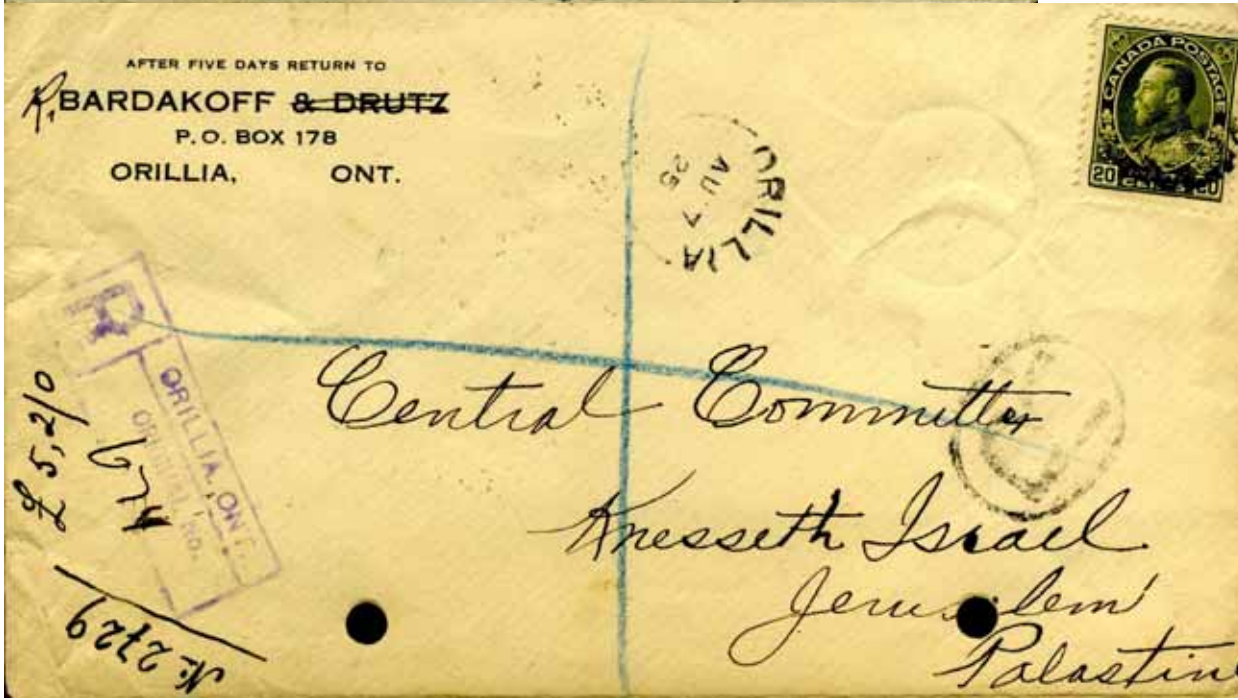 AFTER FIVE DAYS RETURN TO
R. BARDAKOFF & DRUTZ
P. O. BOX 178
ORILLIA, ONT.
CANADA POSTAGE
20 CENTS 20
ORILLIA
AU 7
25
R
ORILLIA, ONT.
ORIGINAL NO.
£ 5,2/0
No 2729
Central Committee
Knesseth Israel
Jerusalem
Palastin